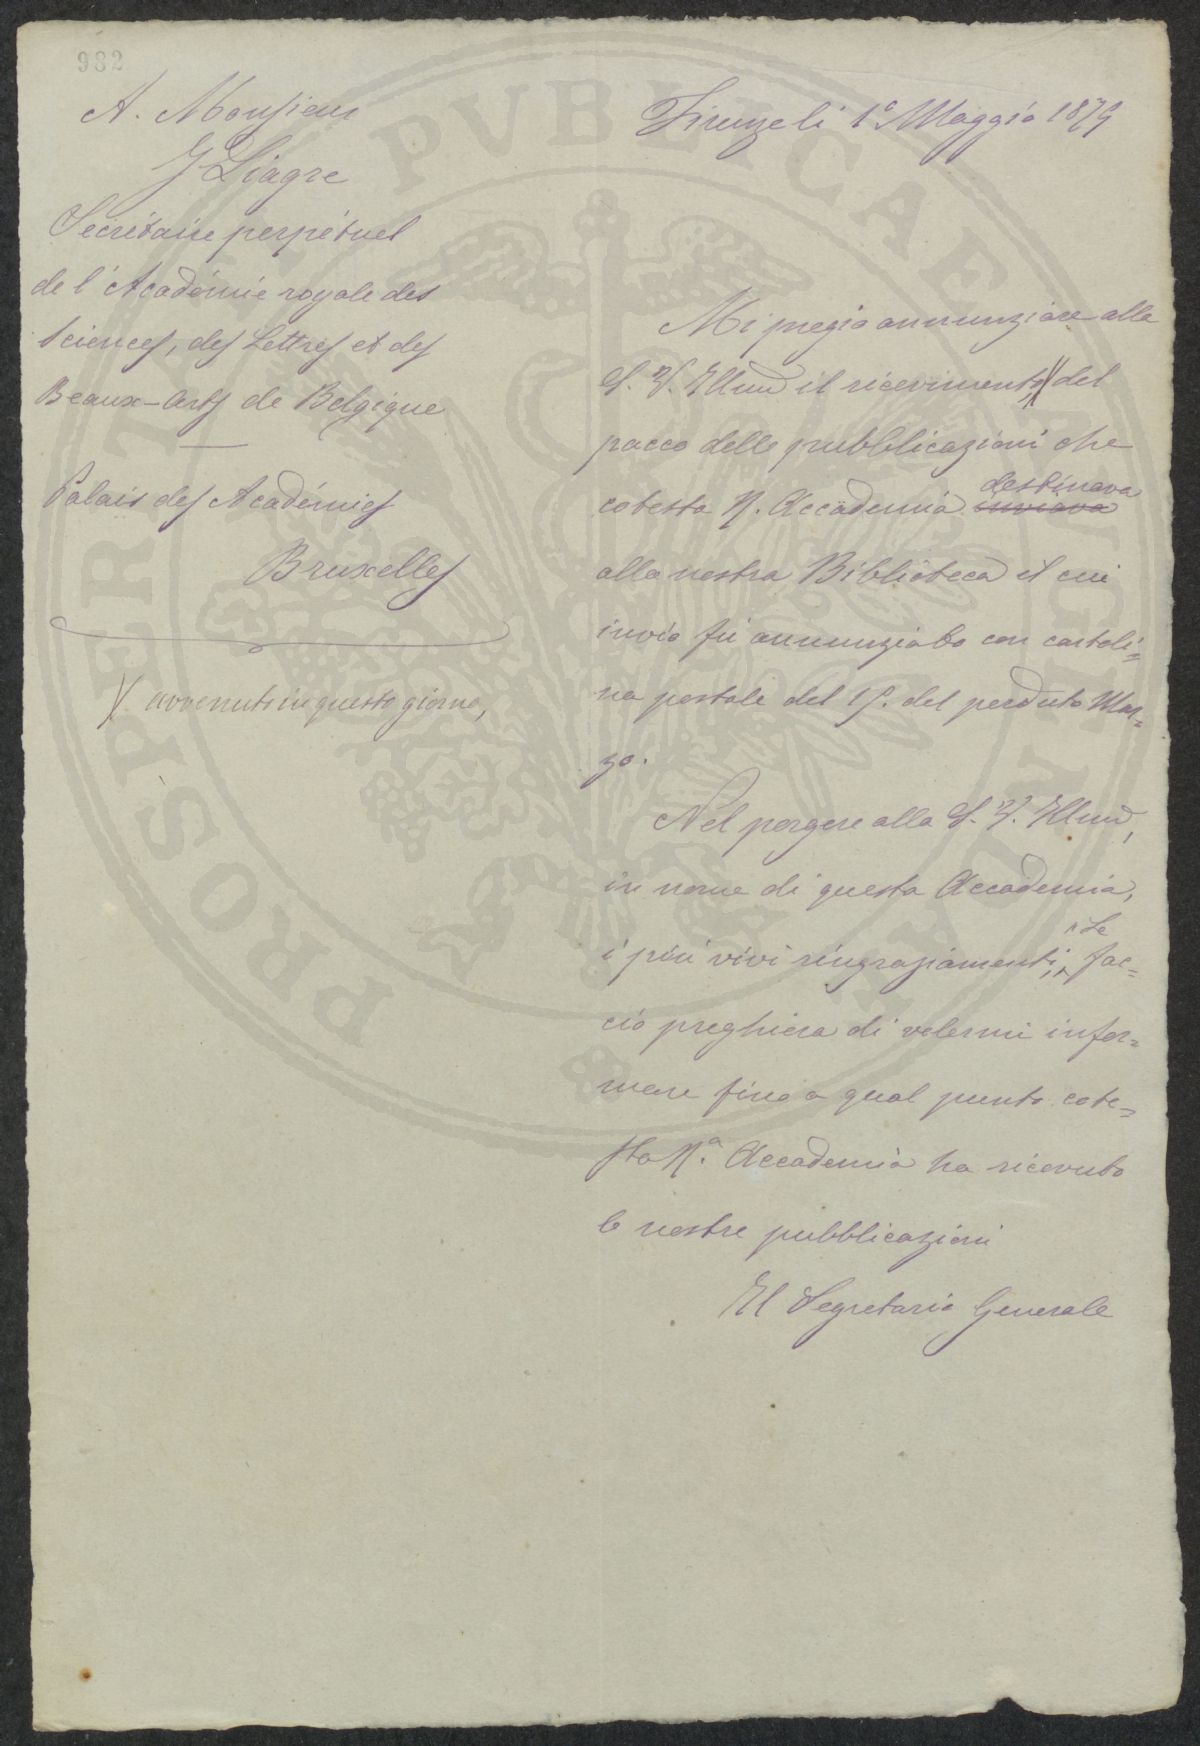 982
A. Monsieur
J Liagre
Secrétaire perpétuel
de l'Académie royale des
Sciences, des Lettres et des
Beaux-Arts de Belgique
Palais des Académies
Bruxelles
X avvenuto in questo giorno,
Firenze li 1° Maggio 1879
Mi pregio annunziare alla
S. V. Illma il ricevimento, X del
pacco delle pubblicazioni che
destinava
cotesta R. Accademia inviava
alla nostra Biblioteca il cui
invio fu annunziato con cartoli=
na postale del 1º. del perduto Mar=
zo.
Nel porgere alla S. V. Illma,
in nome di questa Accademia,
Le
i più vivi ringraziamenti, fac=
cio preghiera di volermi infor=
mare fino a qual punto cote=
sta R.a Accademia ha ricevuto
le nostre pubblicazioni
Il Segretario Generale
PROSPERITATI PVBLICAE AVGENDAE